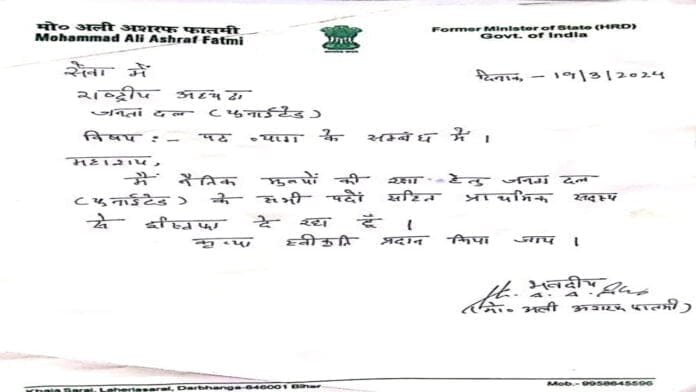 मो० अली अशरफ फातमी
Mohammad Ali Ashraf Fatmi
Former Minister of State (HRD)
Govt. of India
सेवा में
दिनांक - 19/3/2024
राष्ट्रीय अध्यक्ष
जनता दल (यूनाईटेड)
विषय :- पद त्याग के सम्बंध में ।
महाशय,
मैं नैतिक मुल्यों की रक्षा हेतु जनता दल
(यूनाईटेड) के सभी पदों सहित प्राथमिक सदस्य
से इस्तिफा दे रहा हूँ ।
कृप्या स्वीकृति प्रदान किया जाय ।
भवदीय
(मो० अली अशरफ फातमी)
Khala Sarai, Laheriasarai, Darbhanga-846001 Bihar
Mob.- 9958645596